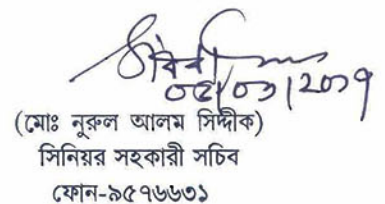 ০৫/০১/২০১৭
(মোঃ নুরুল আলম সিদ্দীক)
সিনিয়র সহকারী সচিব
ফোন-৯৫৭৬৬৩১